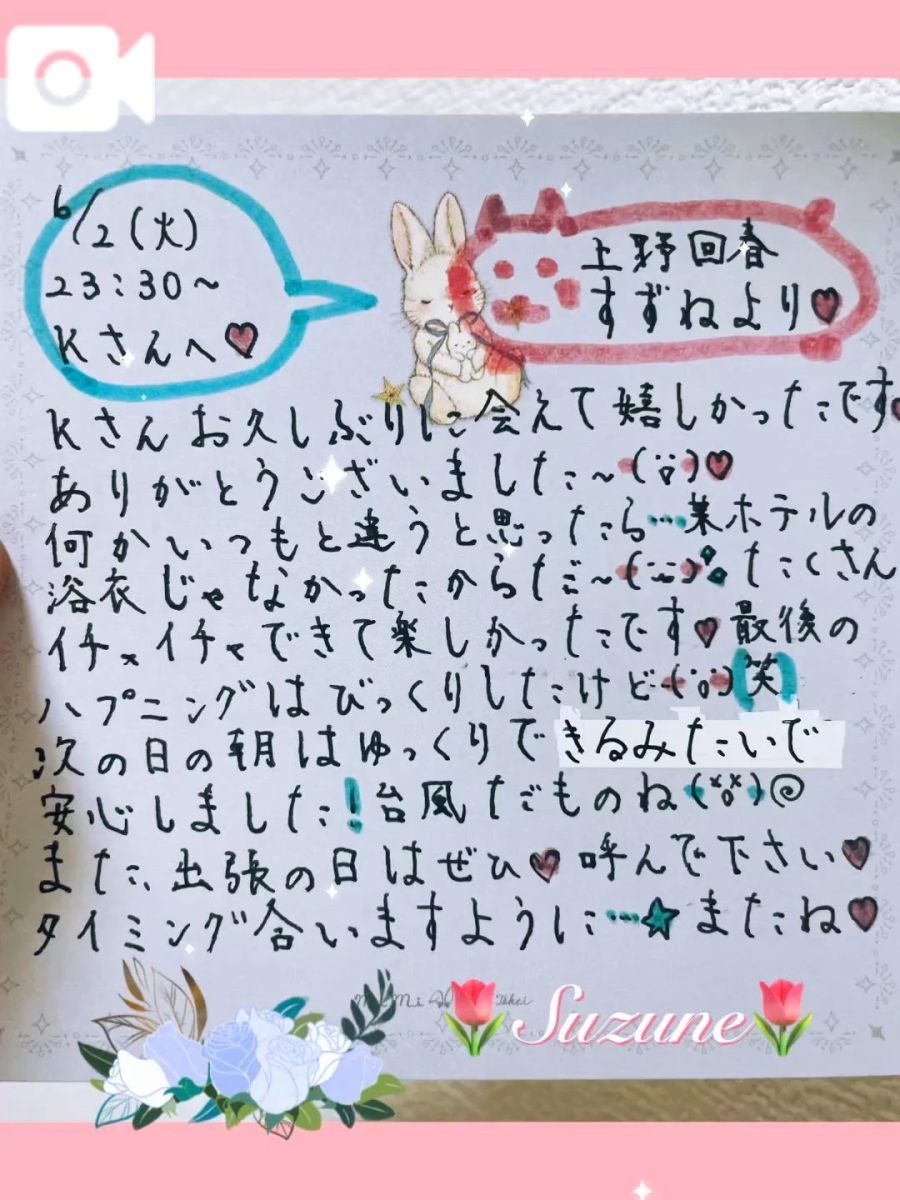 6/2(火)
23:30～
Kさんへ♥
上野回春
すずねより♥
Kさんお久しぶりに会えて嬉しかったです♥
ありがとうございました～(¨)♥
何かいつもと違うと思ったら…某ホテルの
浴衣じゃなかったからだ～(¨)たくさん
イチャイチャできて楽しかったです♥最後の
ハプニングはびっくりしたけど(¨)笑
次の日の朝はゆっくりできるみたいで
安心しました!台風だものね(××)@
また、出張の日はぜひ♥呼んで下さい♥
タイミング合いますように…★またね♥
Suzune